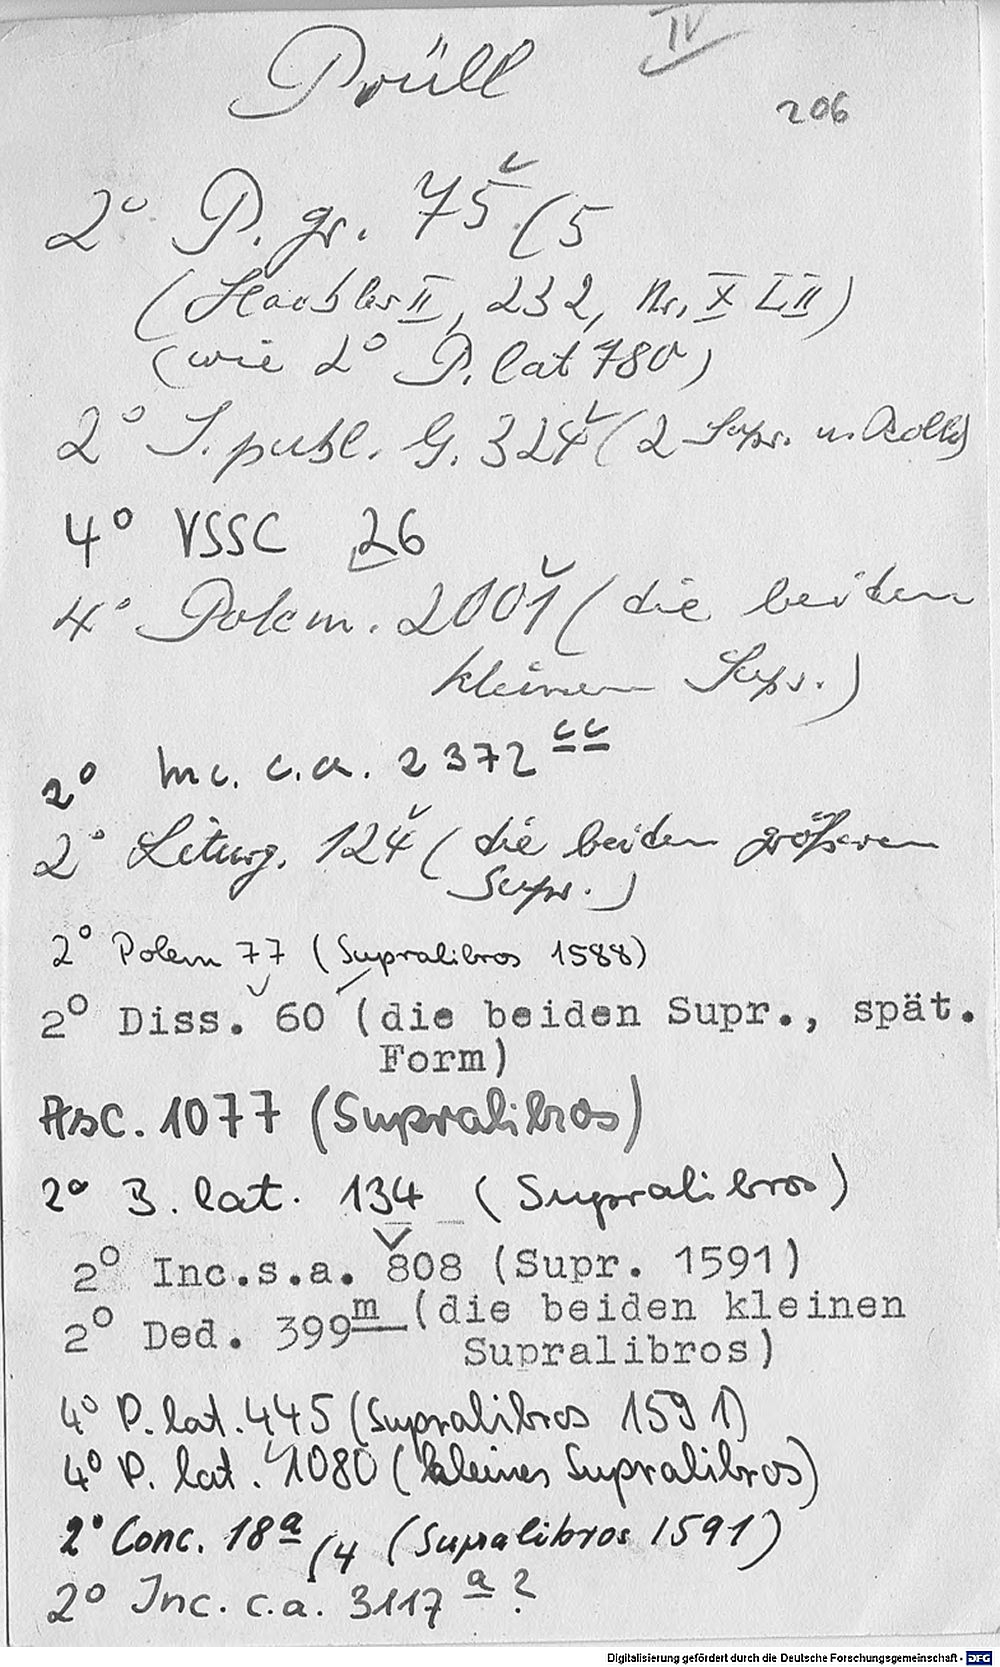 IV
Prüll
206
2° P. gr. 75 (5
(Haebler II, 232, Nr. X LII)
(wie 2° P. lat 780)
2° J. publ. G. 324 (2 Supr. u. Rolle)
4° VSSC 26
4° Polem. 2001 (die beiden
kleinen Supr.)
2° Inc. c. a. 2372 cc
2° Liturg. 124 (die beiden größeren
Supr.)
2° Polem 77 (Supralibros 1588)
2° Diss. 60 (die beiden Supr., spät.
Form)
Asc. 1077 (Supralibros)
2° B. lat. 134 (Supralibros)
2° Inc.s.a. 808 (Supr. 1591)
2° Ded. 399 m (die beiden kleinen
Supralibros)
4° P. lat. 445 (Supralibros 1591)
4° P. lat. 1080 (kleines Supralibros)
2° Conc. 18 a /4 (Supralibros 1591)
2° Inc. c.a. 3117 a ?
Digitalisierung gefördert durch die Deutsche Forschungsgemeinschaft - DFG